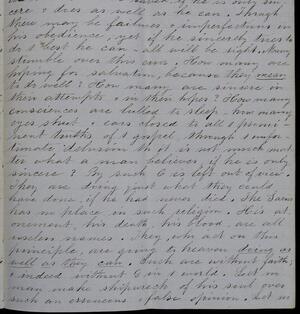 cere & does as well as he can. Though
there may be failures & imperfections in
his obedience, yet if he sincerely tries to
do t best he can - all will be right. Many
stumble over this error. How many are
hoping for salvation, because they mean
to do well? How many are sincere in
their attempts, & in their hopes? How many
consciences are lulled to sleep, how many
eyes shut, & ears closed to all t prominent
truths, of t gospel, through t unfor-
tunate delusion that it is not much mat-
ter what a man believes, if he is only
sincere? By such C is left out of view.
They are doing just what they could
have done, if he had never died. The Savior
has no place in such religion. His at
onement, his death, his blood, are all
useless names. They, who act on this
principle, are going to heaven doing as
well as they can. Such are without faith,
& indeed without C in t world. Let no
man make shipwreck of his soul over
such an erroneous & false opinion. Let us